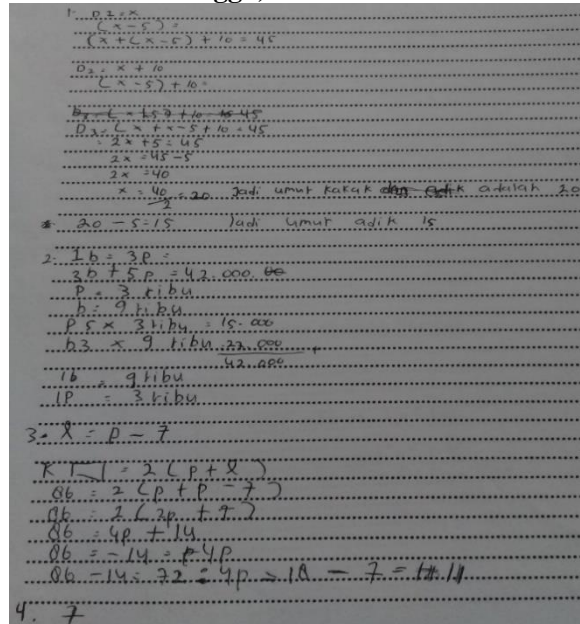 1. D1 = x
(x - 5) =
(x + (x - 5) + 10 = 45
D2 = x + 10
(x - 5) + 10 =
D3 = (x + x - 5 + 10 = 45
= 2x + 5 = 45
2x = 45 - 5
2x = 40
x = 40/2 = 20 Jadi umur kakak adalah 20
20 - 5 = 15 Jadi umur adik 15
2. 1b = 3p =
3b + 5p = 42.000
P = 3 ribu
b = 9 ribu
P 5 x 3 ribu = 15.000
b3 x 9 ribu 27.000 +
42.000
1b = 9 ribu
1P = 3 ribu
3. l = p - 7
K = 2 (p + l)
86 = 2 (p + p - 7)
86 = 2 (2p + 7)
86 = 4p + 14
86 = -14 = 4p
86 - 14 = 72 = 4p = 18 - 7 = 11
4. 7